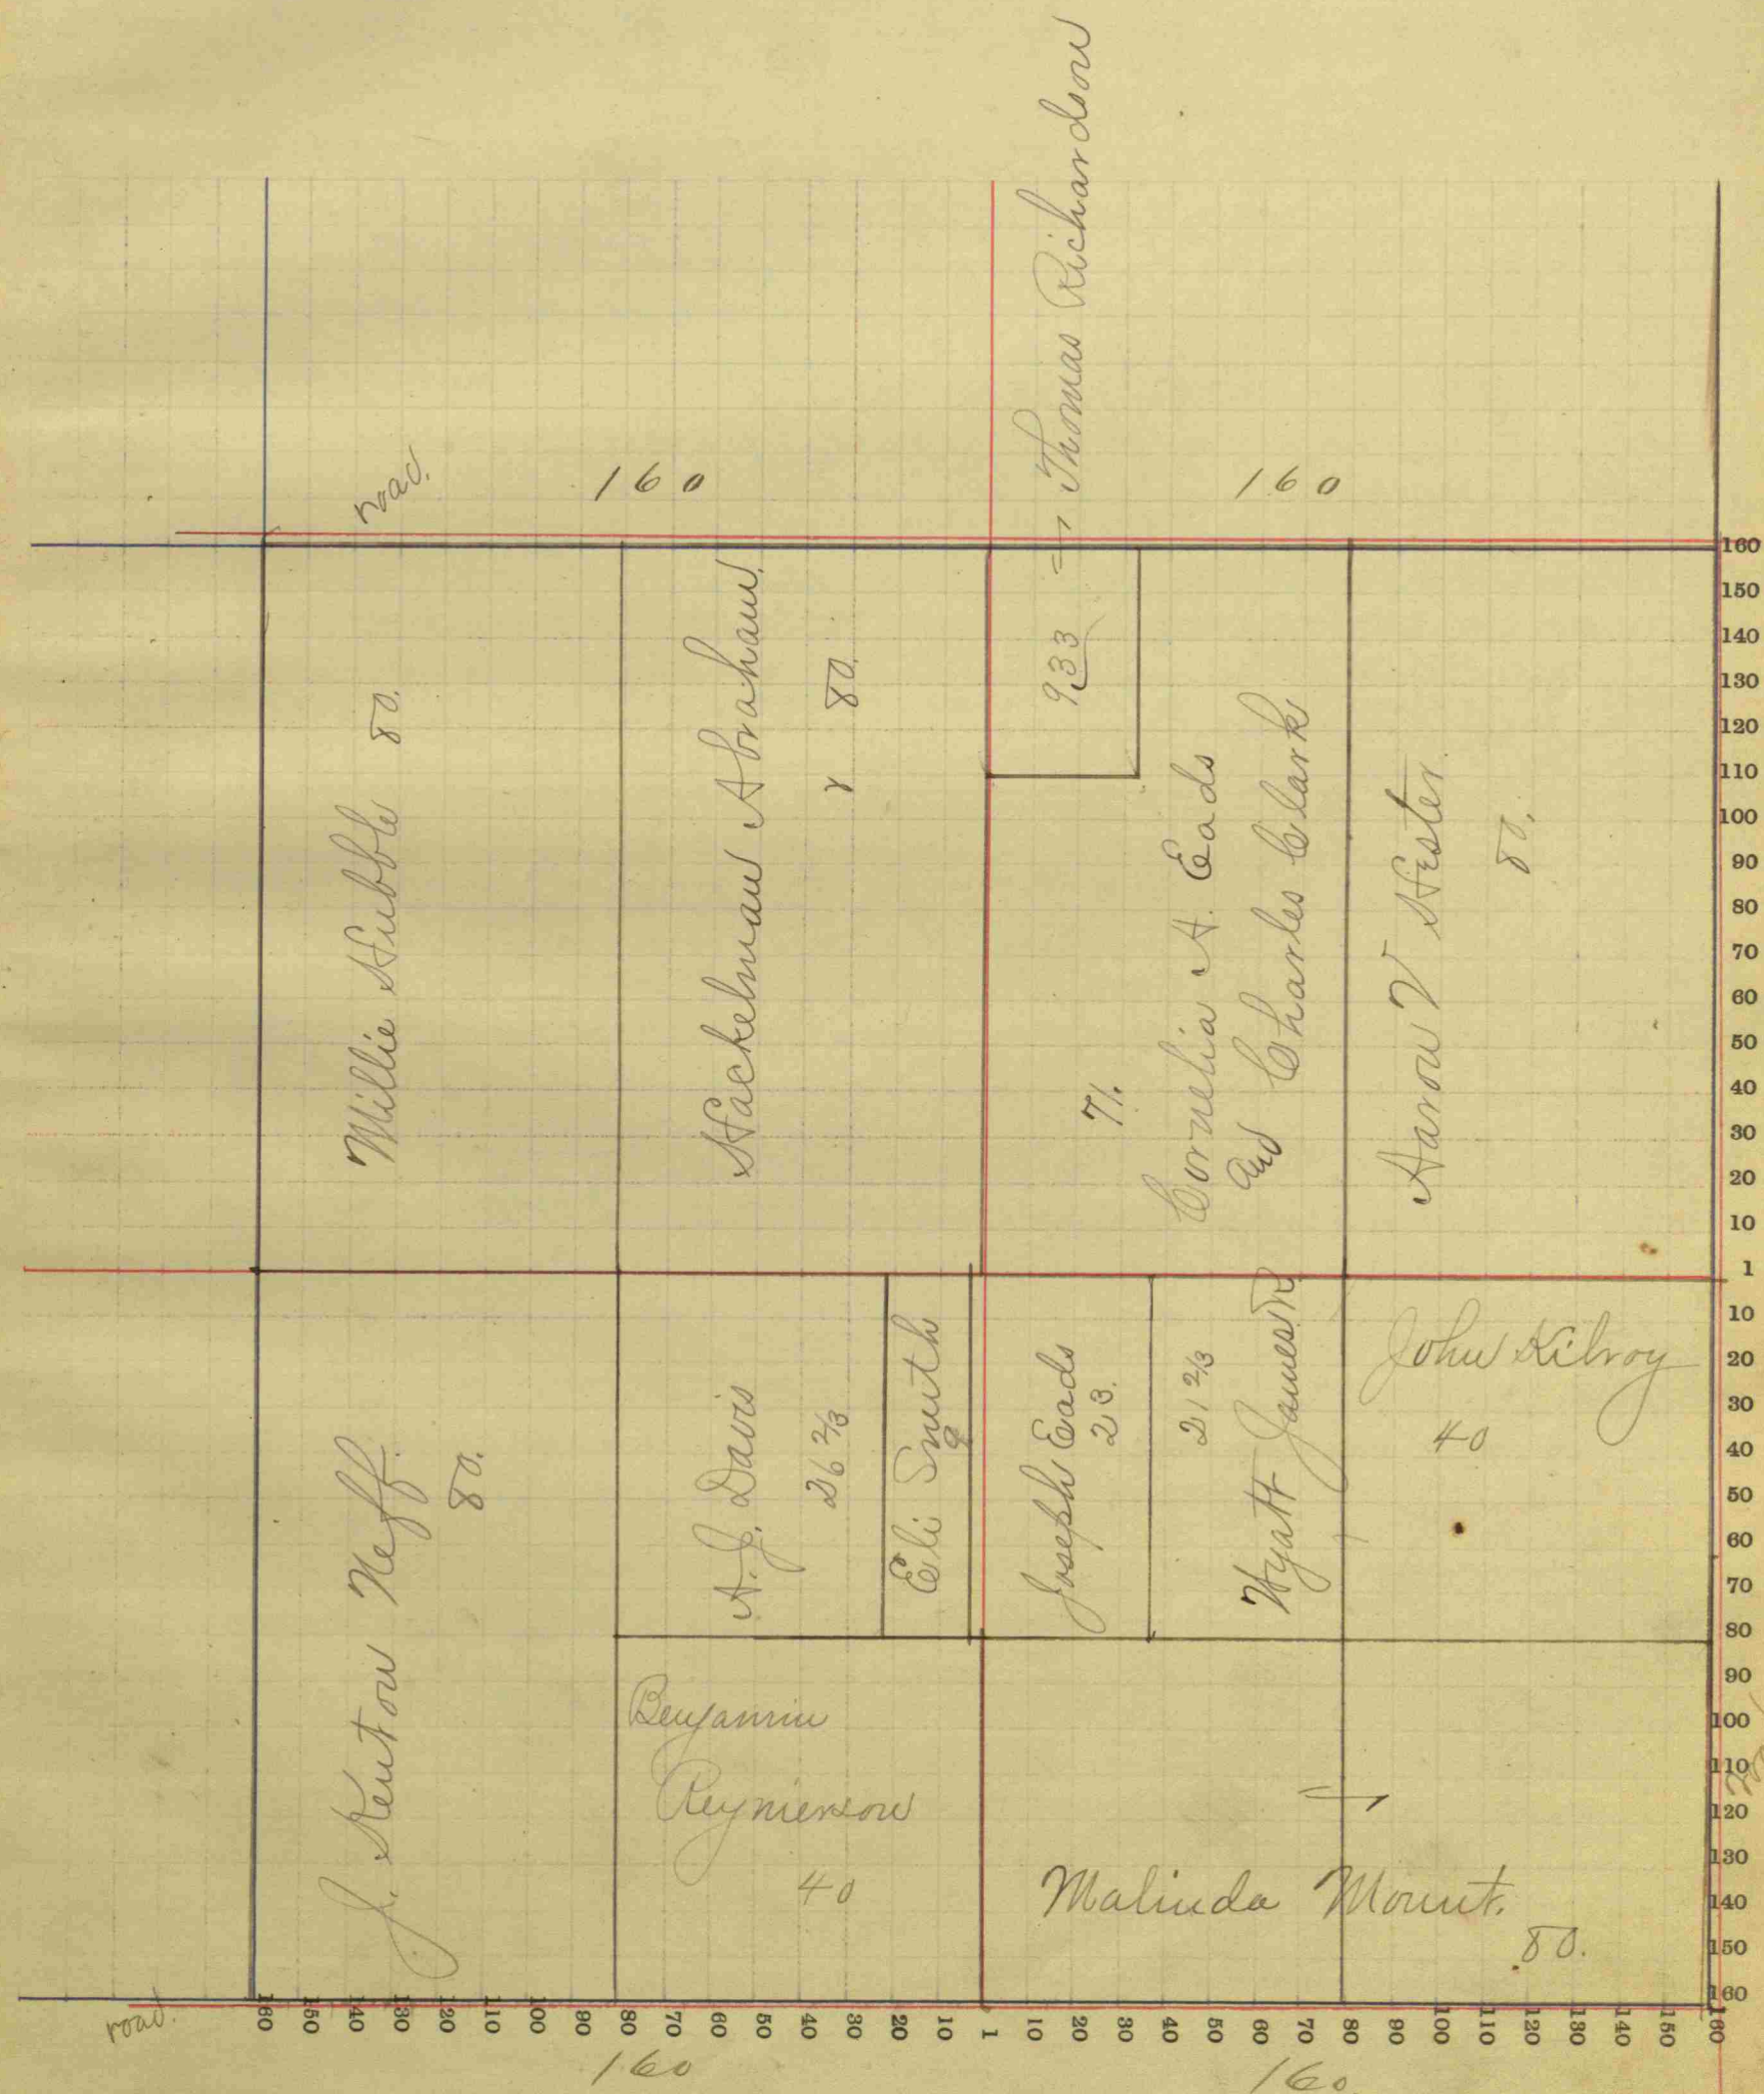 Thomas Richardson
road.
160
160
Millie Hubble 80.
Hackelman Abraham
80.
9.33
71.
Cornelia A. Eads
and Charles Clark
Aaron V Hester
80.
J. Kenton Neff.
80.
A. J. Davis
26 2/3
Eli Smith
9
Joseph Eads
23.
21 2/3
Wyatt James R
John Kilroy
40
Benjamin
Reynierson
40
Malinda Mount.
80.
160
150
140
130
120
110
100
90
80
70
60
50
40
30
20
10
1
10
20
30
40
50
60
70
80
90
100
110
120
130
140
150
160
road.
160 150 140 130 120 110 100 90 80 70 60 50 40 30 20 10 1 10 20 30 40 50 60 70 80 90 100 110 120 130 140 150 160
160
160